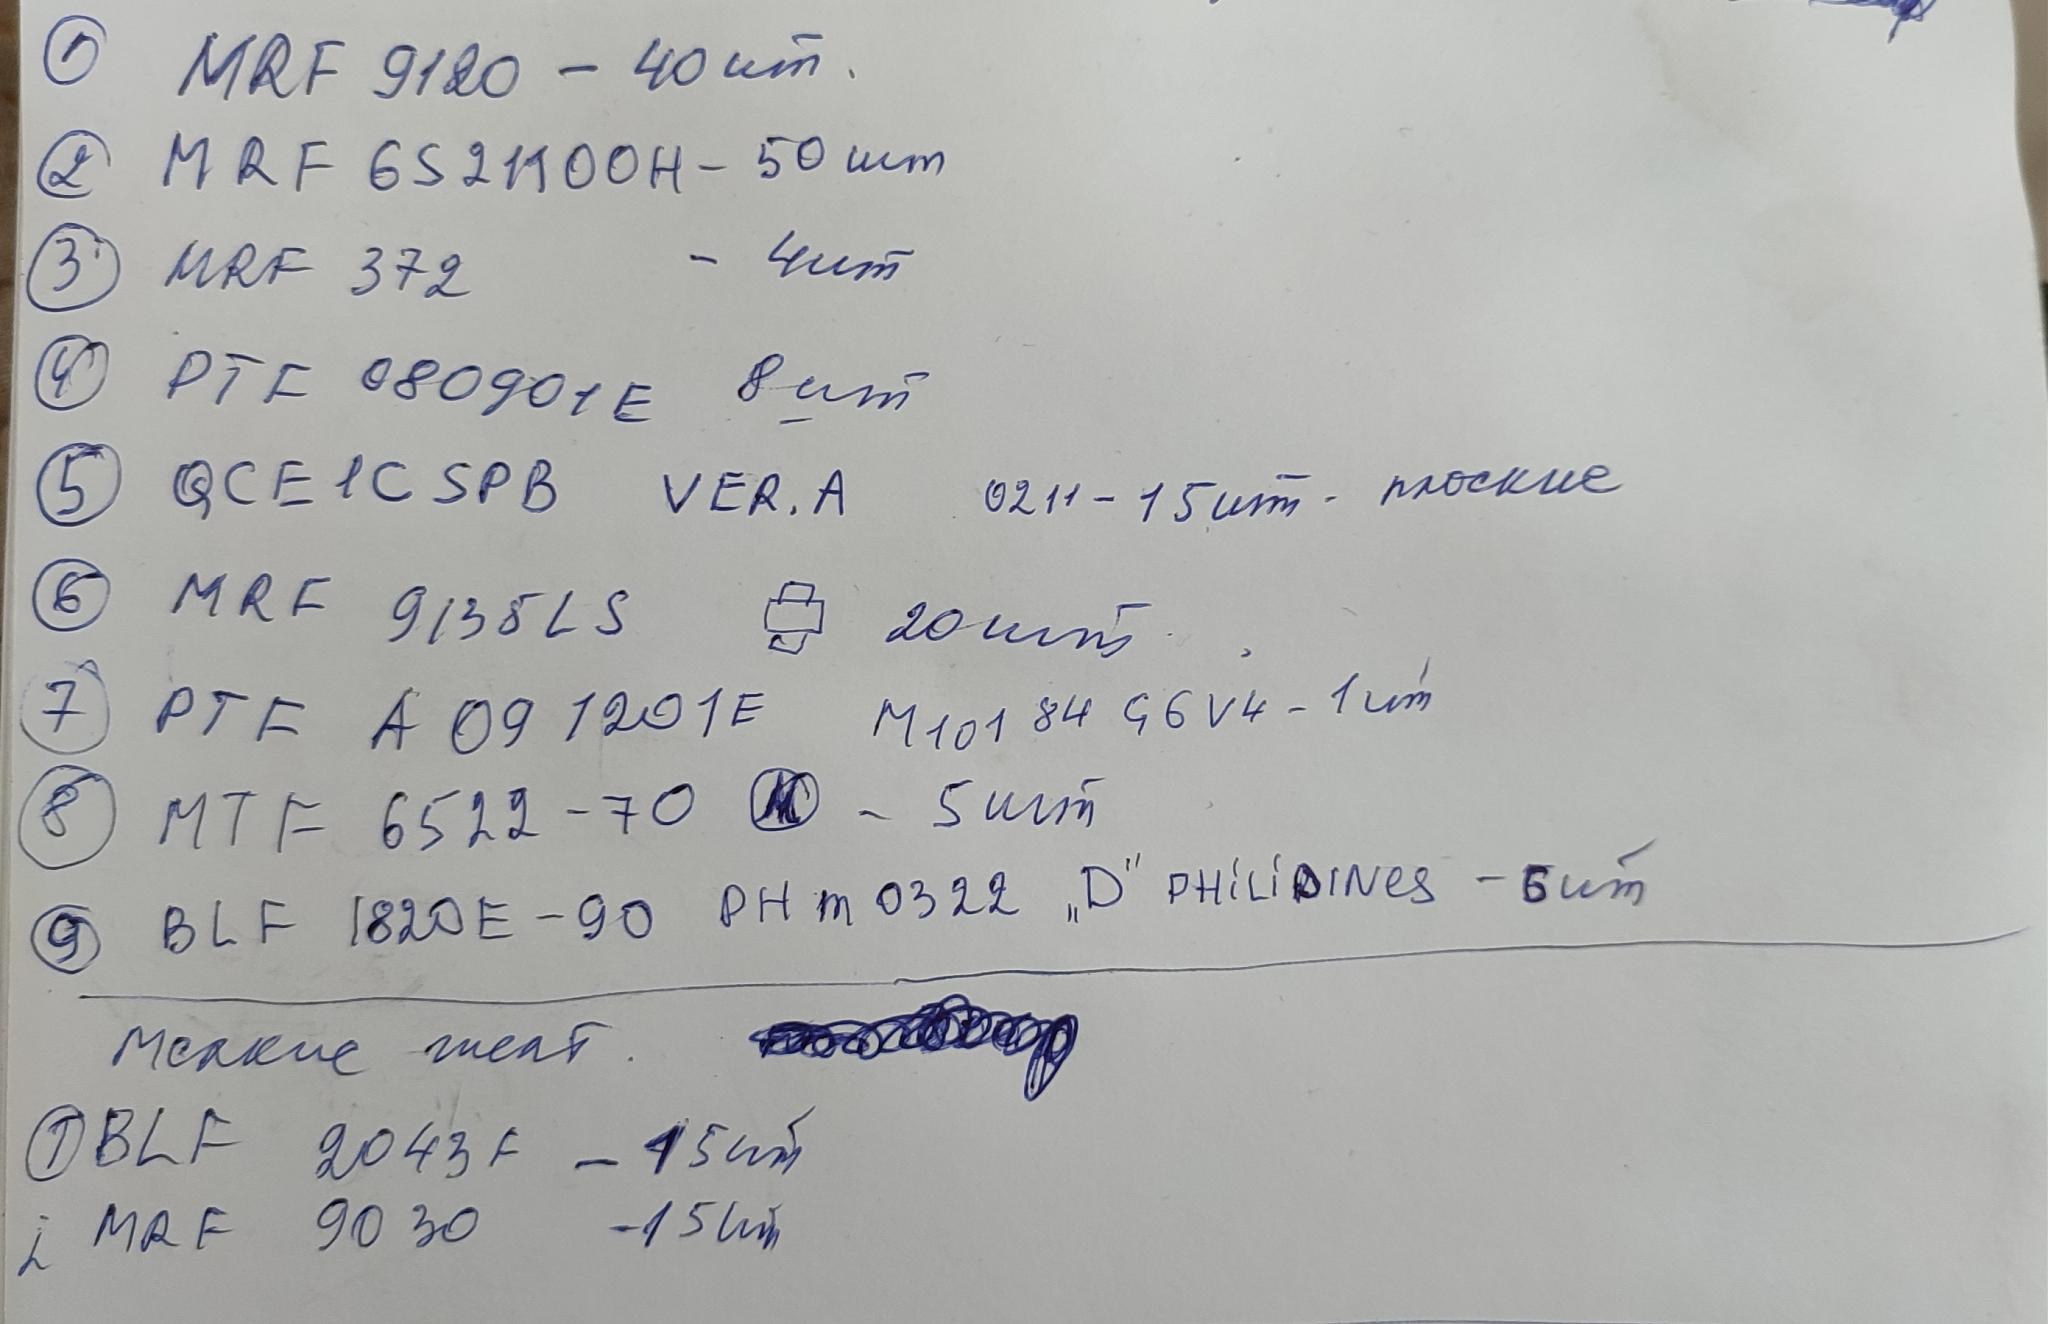 1 MRF 9120 - 40 шт.
2 MRF 6S21100H - 50 шт
3 MRF 372 - 4 шт
4 PTF 080901E 8 шт
5 QCE1CSPB VER.A 0211 - 15 шт. плоские
6 MRF 9135LS 20 шт.
7 PTF A 091201E M10184 G6V4 - 1 шт
8 MTF 6522-70 - 5 шт
9 BLF 1820E-90 PHm0322 „D" PHiLiPINes - 5 шт
Мелкие желт.
1 BLF 2043F - 15 шт
2 MRF 9030 - 15 шт